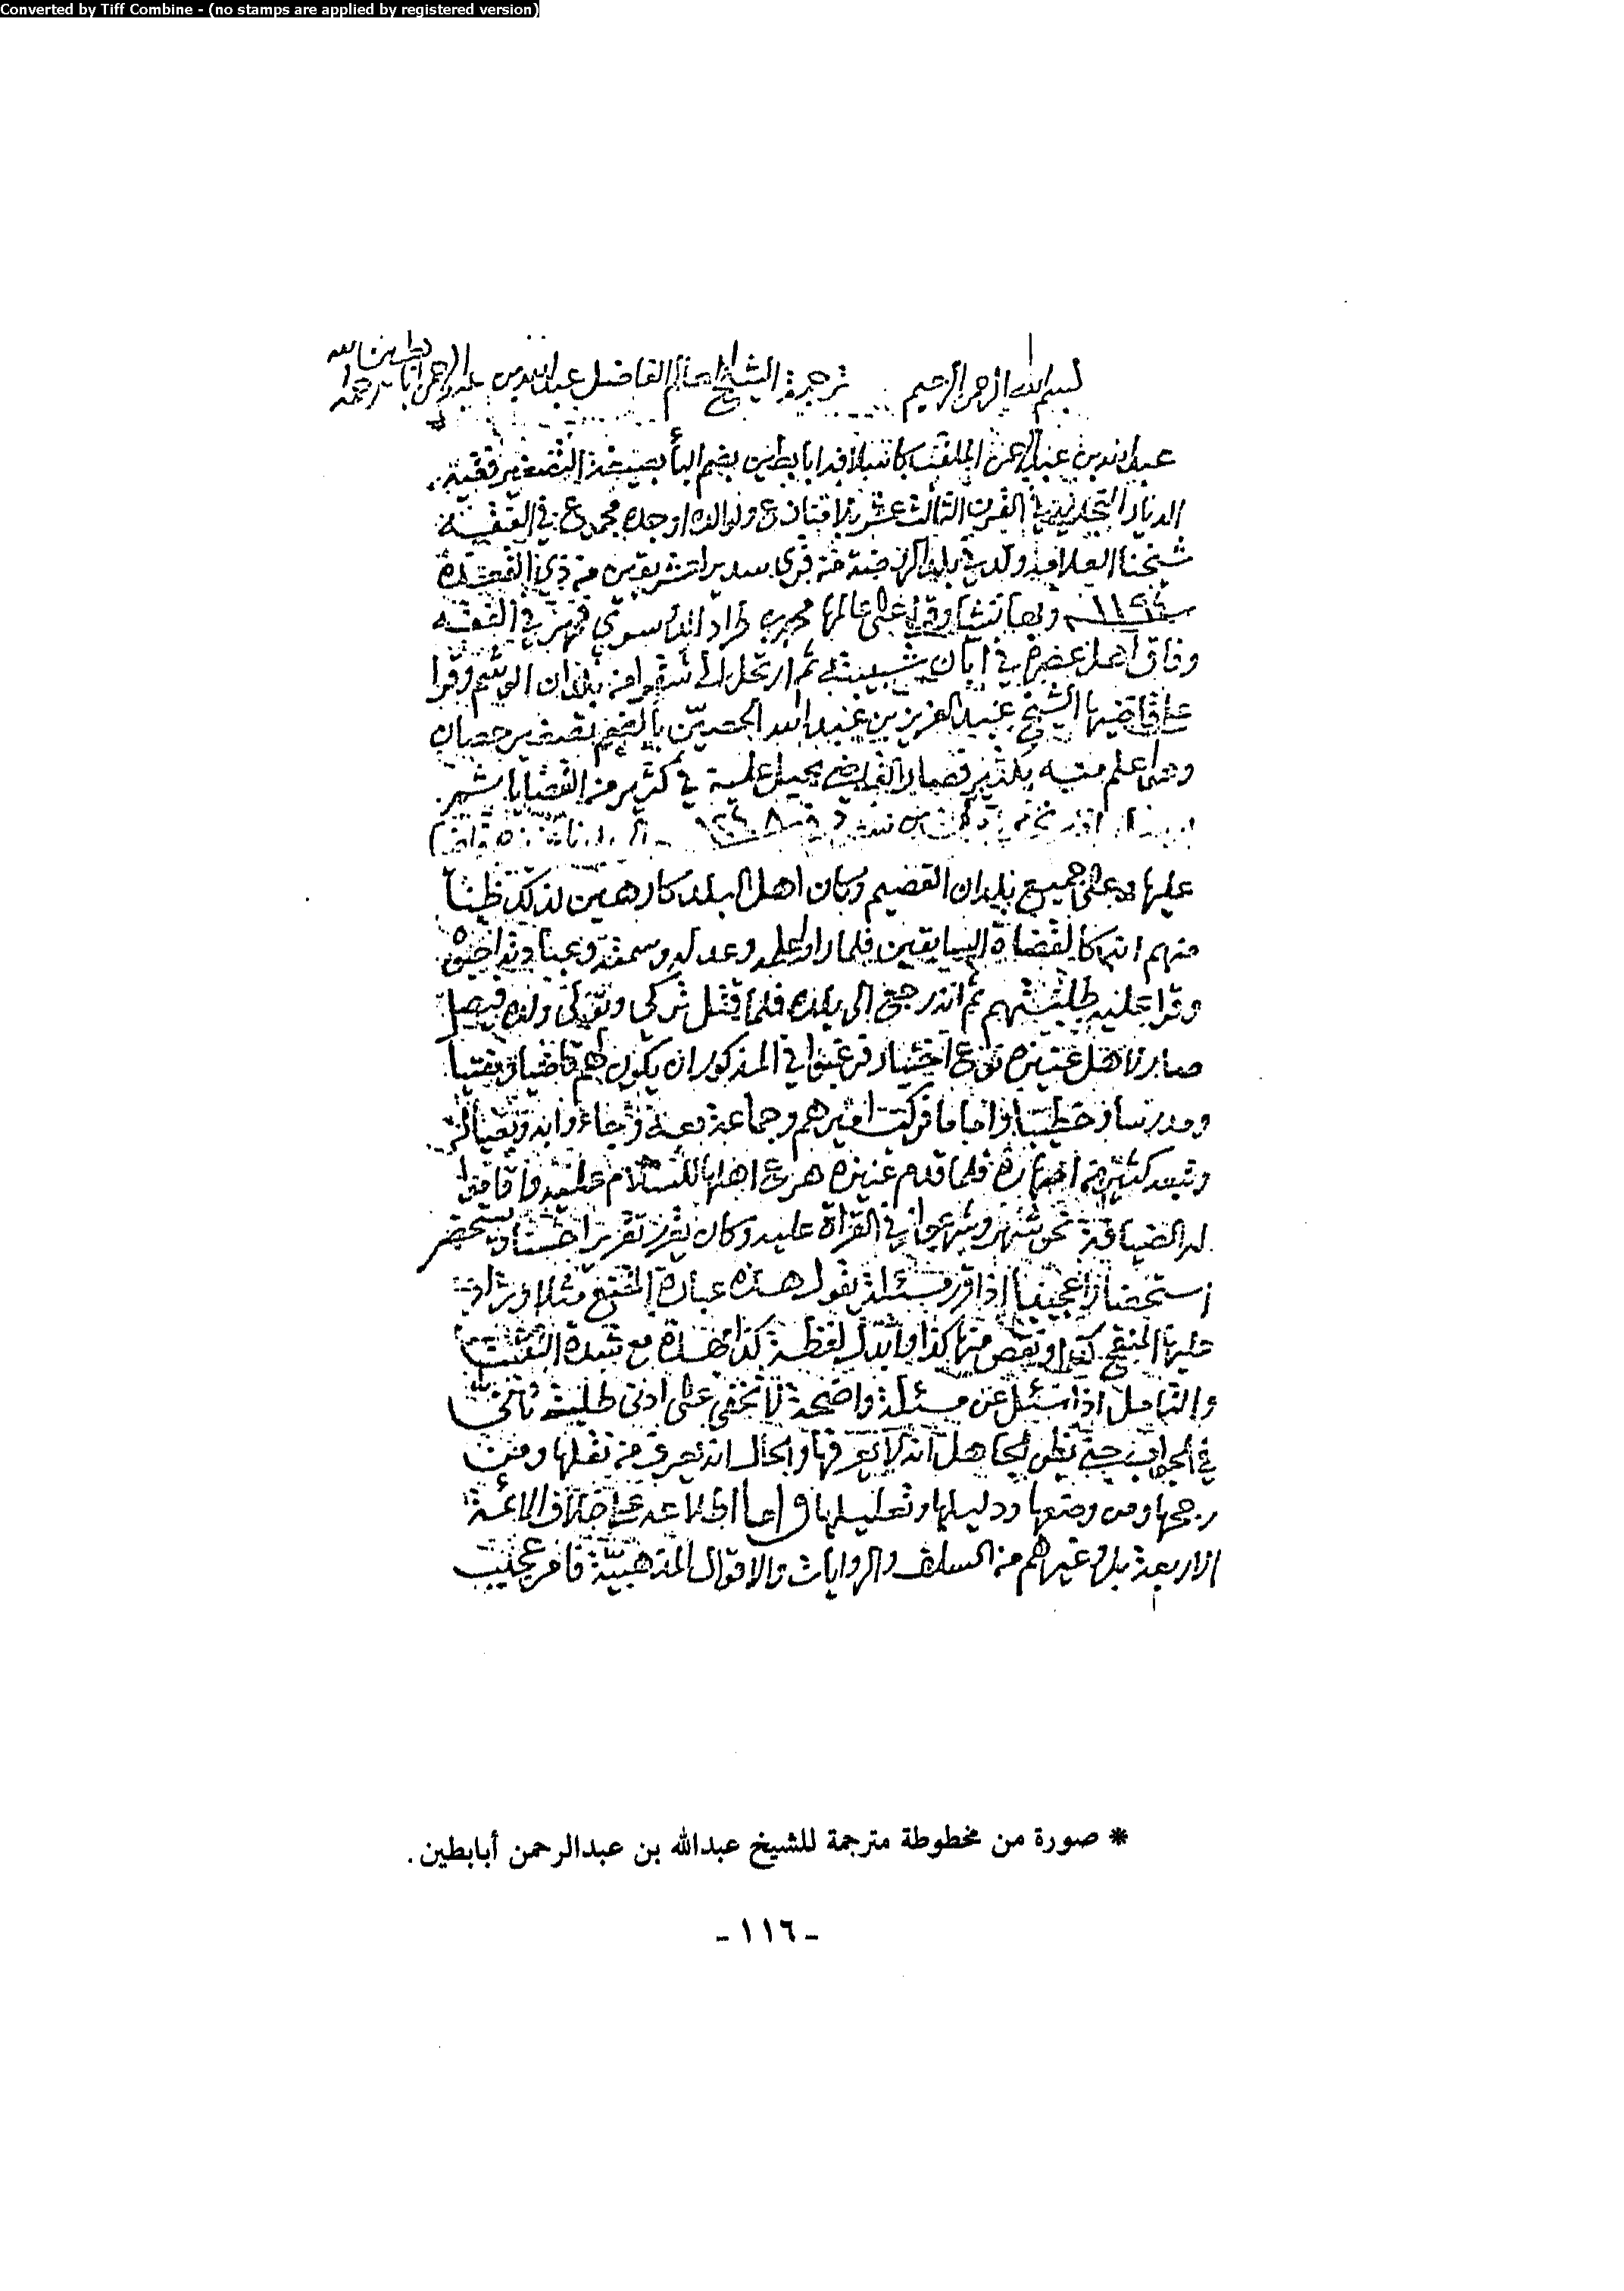 Converted by Tiff Combine - (no stamps are applied by registered version)
بسم الله الرحمن الرحيم ترجمة الشيخ العالم الفاضل عبدالله بن عبدالرحمن أبا بطين رحمه الله
عبدالله بن عبدالرحمن الملقب كاسلافه ابابطين بضم البأ بصيغة التصغير فقيه
الديار النجدية في القرن الثالث عشر بلا منازع في الفقيه
شيخنا العلامه ولد في بلد الروضة من قرى سدير لعشر بقين من ذي القعدة
١١٩٤ وبها نشا وقرا على عالمها محمد بن طراد الدوسري فمهر في الفقه
وفاق اهل عصره في ابان شبيبته ثم ارتحل الى شقرا من بلدان الوشم وقرا
على قاضيها الشيخ عبد العزيز بن عبد الله الحصين بالضم تصغير حصان
اعلم منه بكثير فصار القاضي يحيل عليه في كثير من القضايا
١٢٤٨
عليها وعلى جميع بلدان القصيم وكان اهل البلد كارهين لذلك ظنا
منهم انه كالقضاة السابقين فلما راوا علمه وعدله وسمته وعبادته احبوه
وقرا عليه طلبتهم ثم انه رجع الى بلده فلما قتل تركي وتولى ولده فيصل
صار لاهل عنيزه نوع اختيار فرغبوا في المذكور ان يكون لهم قاضيا ومفتيا
ومدرسا وخطيبا واماما فركب اميرهم وجماعة معه وجاءوا به وبعياله
كثير من فلما قدم عنيزه هرع اهلها للسلام عليه واقاموا
له الضيافة نحو شهر وشرعوا في القراة عليه وكان يقرر تقريرا حسنا ويستحضر
استحضارا عجيبا اذا قرر مسئلة يقول هذه عبارة المقنع مثلا وزاد
عليها المنقح كذا ونقص منها كذا وابدل لفظة كذا بهذه مع شدة التثبت
والتامل اذا سئل عن مسئلة واضحة لا تخفى على ادنى طلبته تانى
في الجواب حتى يظن الجاهل انه لا يعرفها والحال انه يعرف من نقلها ومن
رجحها ومن ودليلها وتعليلها واما اطلاعه على خلاف الائمة
الاربعة بل وغيرهم من السلف والروايات والاقوال المذهبية فامر عجيب
* صورة من مخطوطة مترجمة للشيخ عبدالله بن عبدالرحمن أبابطين .
- ١١٦ -